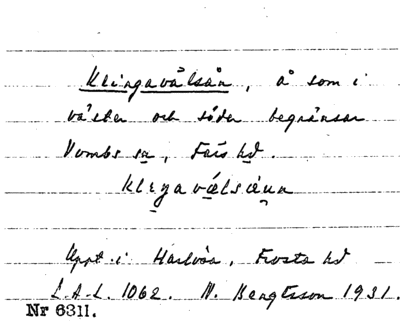 Klingavälsån, å som i
väster och söder begränsar
Vombs sn, Färs hd.
klɪŋavælsåun
Uppt. i Harlösa, Frosta hd
L.A.L. 1062. N. Bengtsson 1931.
Nr 6311.